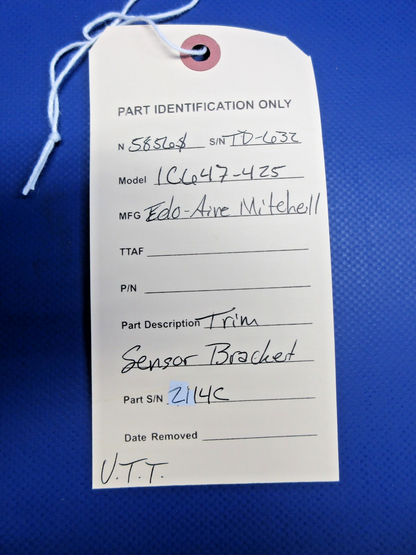 PART IDENTIFICATION ONLY
N 58568 S/N TD-632
Model 1C647-425
MFG Edo-Aire Mitchell
TTAF
P/N
Part Description Trim
Sensor Bracket
Part S/N 2114C
Date Removed
V.T.T.